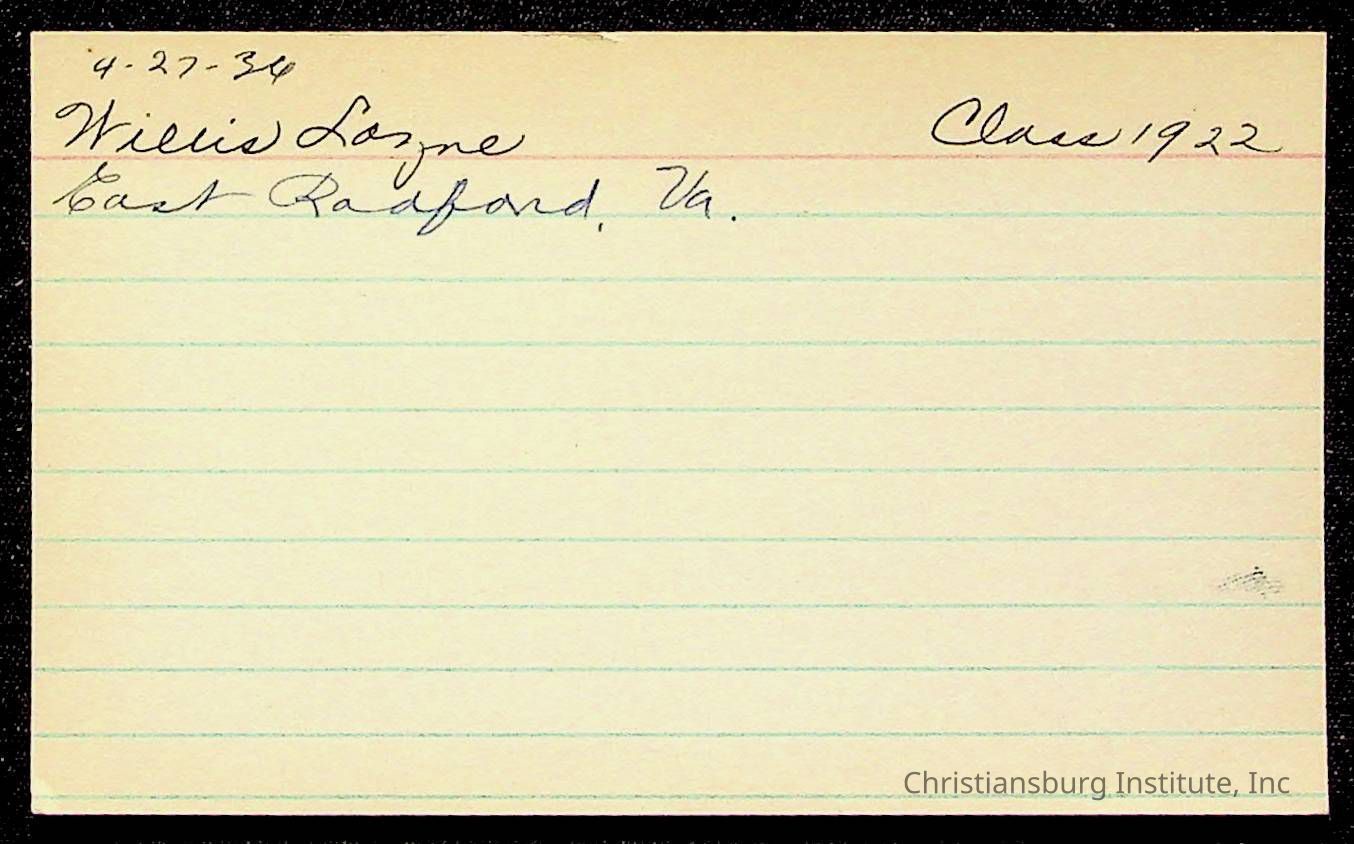 4-27-36
Willis Class 1922
East Radford, Va.
Christiansburg Institute, Inc